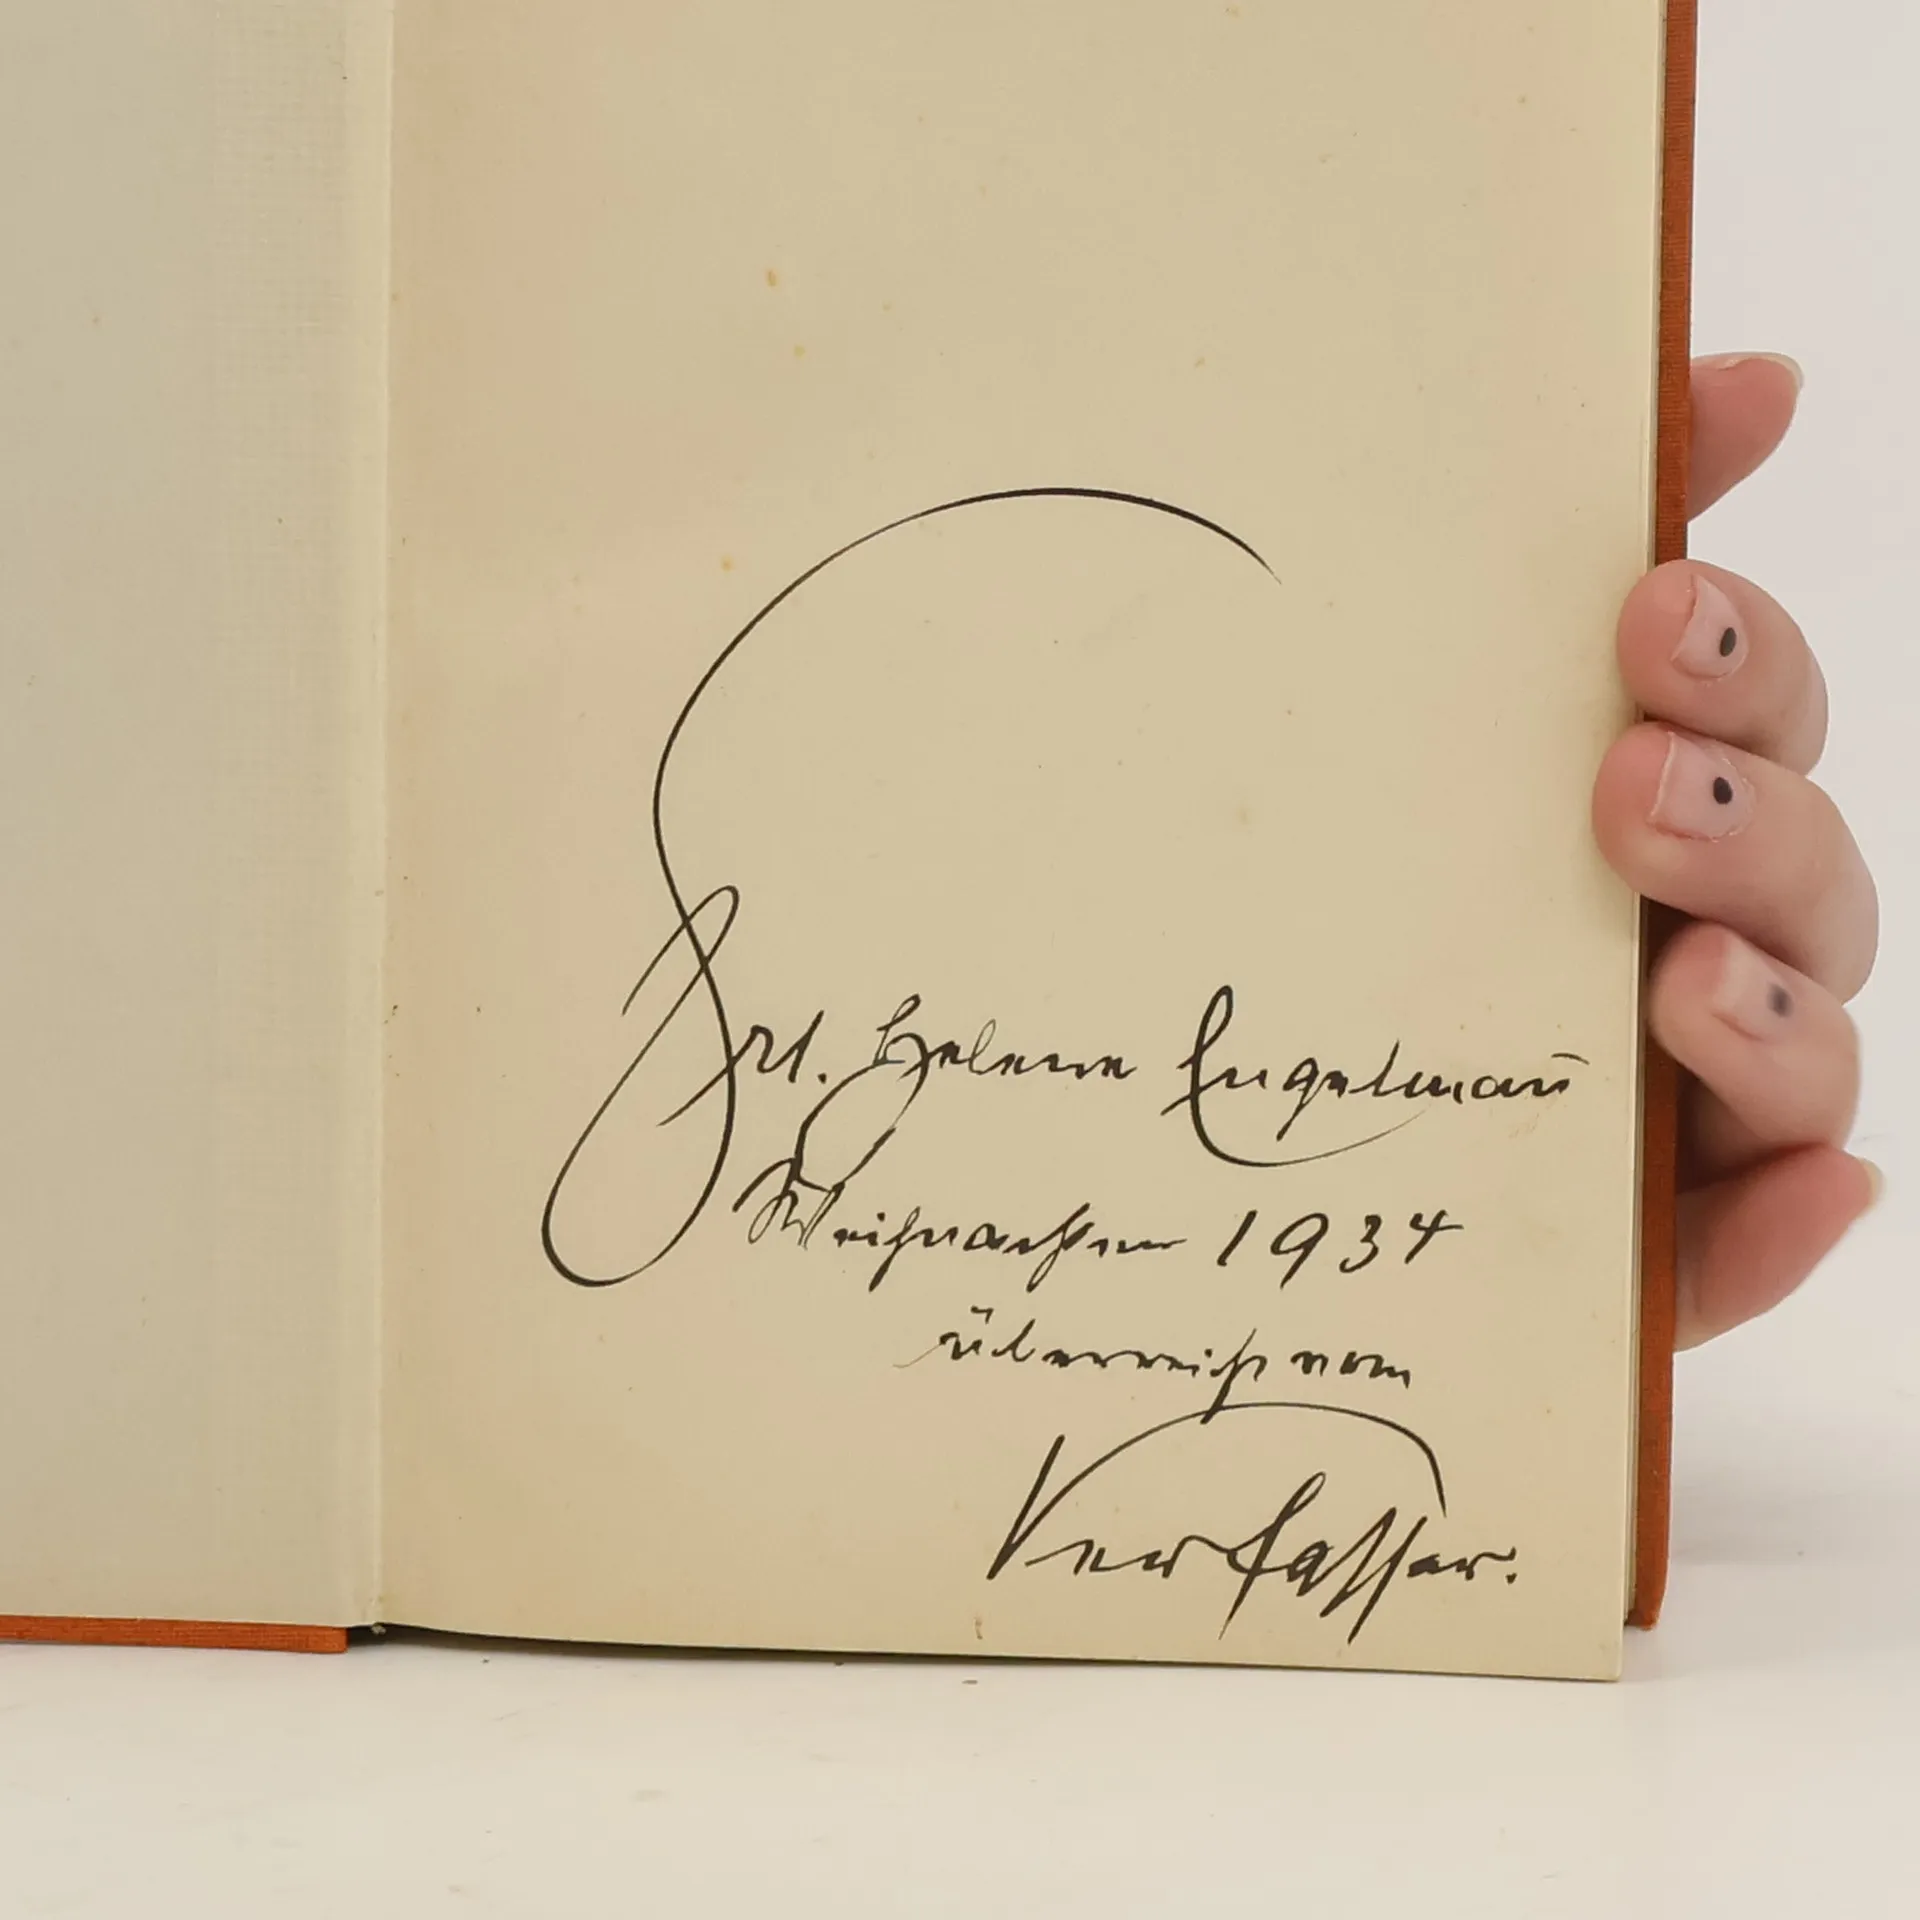 Frl. Helene Engelmann̄
Weihnachten 1934
überreicht vom
Verfasser.